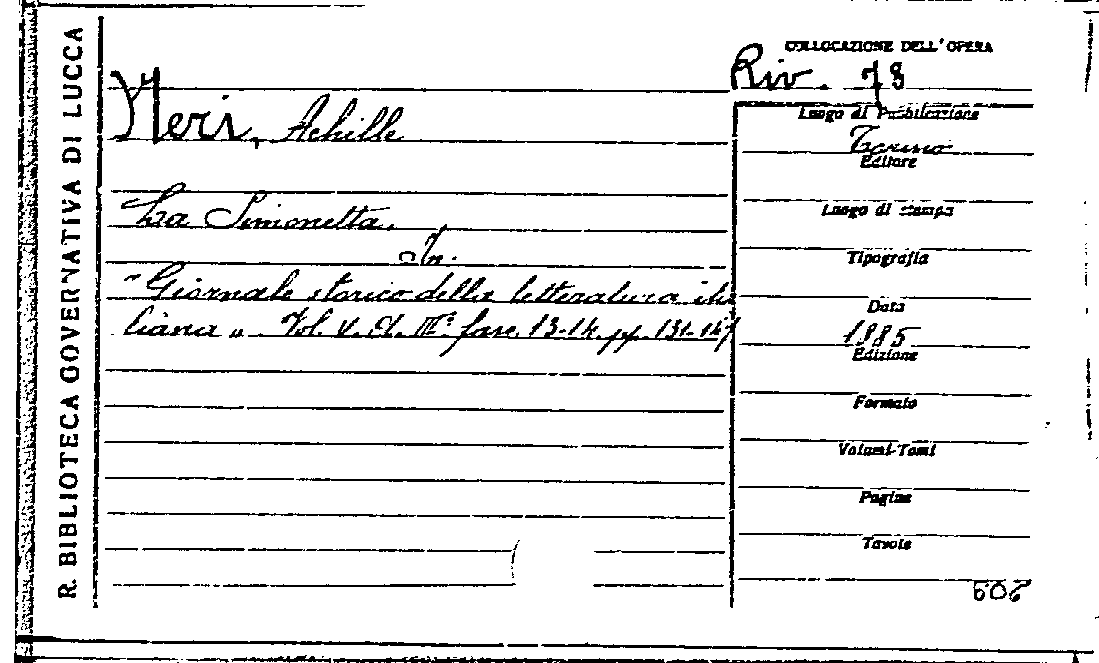 R. BIBLIOTECA GOVERNATIVA DI LUCCA
COLLOCAZIONE DELL'OPERA
Riv. 78
Neri, Achille
Luogo di Pubblicazione
Torino
Editore
La Simonetta.
Luogo di stampa
In.
Tipografia
"Giornale storico della letteratura ita
Data
liana" Vol. V. A. III° fasc. 13-14 pp. 131-147
1885
Edizione
Formato
Volumi-Tomi
Pagine
Tavole